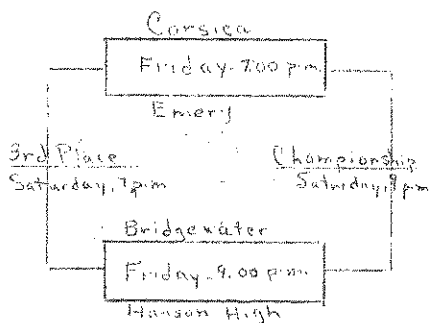 Corsica
Friday-7:00 p.m.
Emery
3rd Place
Saturday, 7p.m
Championship
Saturday, 9 pm
Bridgewater
Friday-9.00 p.m.
Hanson High